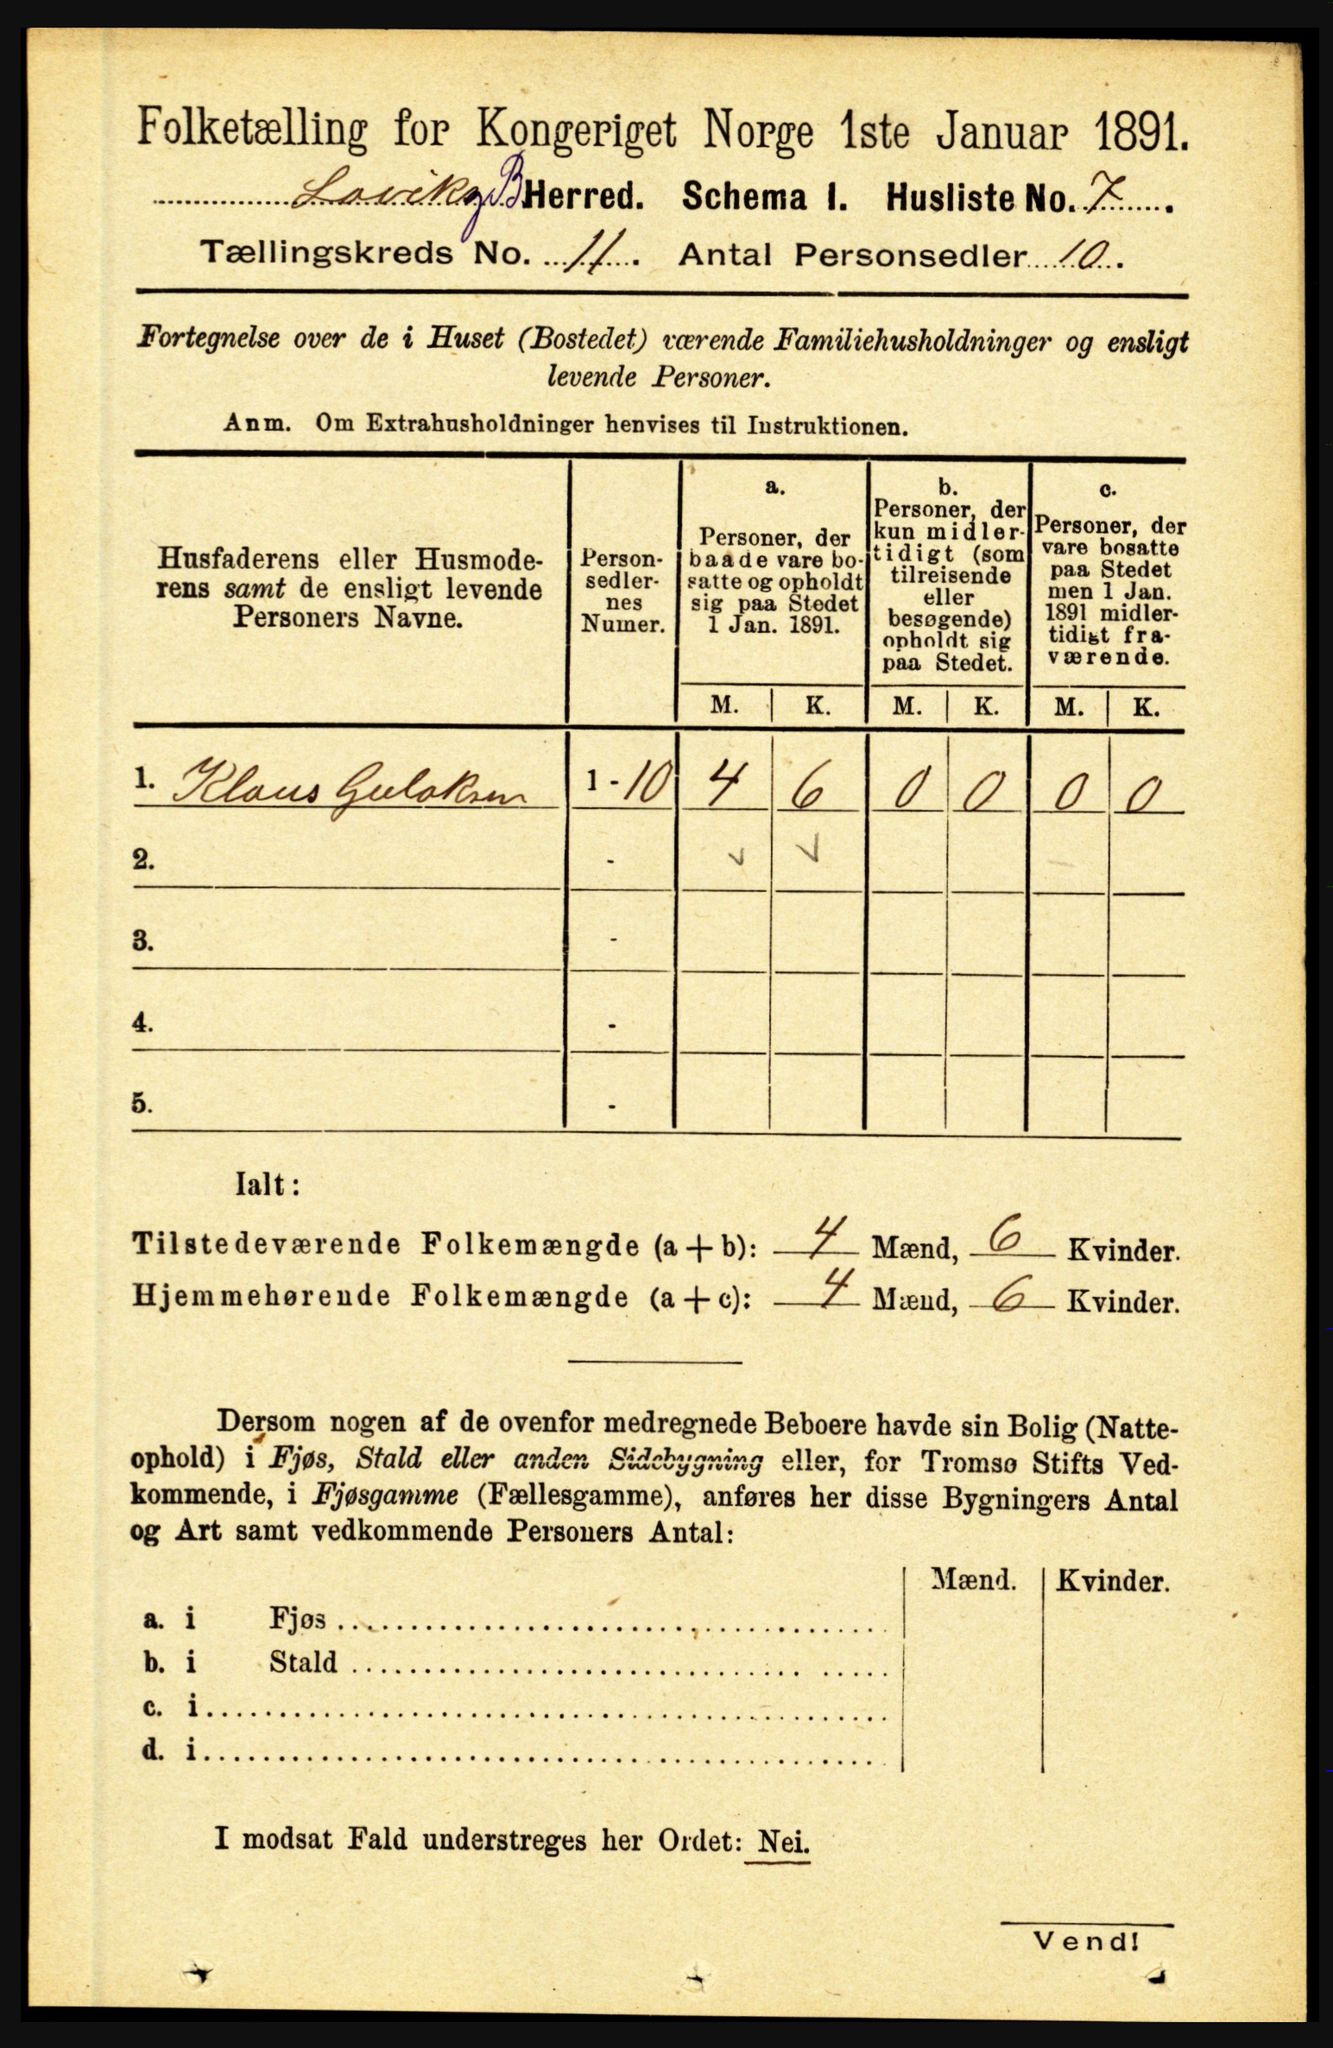 Folketælling for Kongeriget Norge 1ste Januar 1891.
Herred. Schema I. Husliste No. 7.
Tællingskreds No. 11. Antal Personsedler 10.
Fortegnelse over de i Huset (Bostedet) værende Familiehusholdninger og ensligt
levende Personer.
Anm. Om Extrahusholdninger henvises til Instruktionen.
Husfaderens eller Husmode-
rens samt de ensligt levende
Personers Navne.
Person-
sedler-
nes
Numer.
a.
Personer, der
baade vare bo-
satte og opholdt
sig paa Stedet
1 Jan. 1891.
b.
Personer, der
kun midler-
tidigt (som
tilreisende
eller
besøgende)
opholdt sig
paa Stedet.
c.
Personer, der
vare bosatte
paa Stedet
men 1 Jan.
1891 midler-
tidigt fra-
værende.
M. K. M. K. M. K.
1. Klaus Gulaksen 1 - 10 4 6 0 0 0 0
2. - ✓ ✓
3. -
4. -
5. -
Ialt:
Tilstedeværende Folkemængde (a + b): 4 Mænd, 6 Kvinder.
Hjemmehørende Folkemængde (a + c): 4 Mænd, 6 Kvinder.
Dersom nogen af de ovenfor medregnede Beboere havde sin Bolig (Natte-
ophold) i Fjøs, Stald eller anden Sidebygning eller, for Tromsø Stifts Ved-
kommende, i Fjøsgamme (Fællesgamme), anføres her disse Bygningers Antal
og Art samt vedkommende Personers Antal:
Mænd. Kvinder.
a. i Fjøs
b. i Stald
c. i
d. i
I modsat Fald understreges her Ordet: Nei.
Vend!